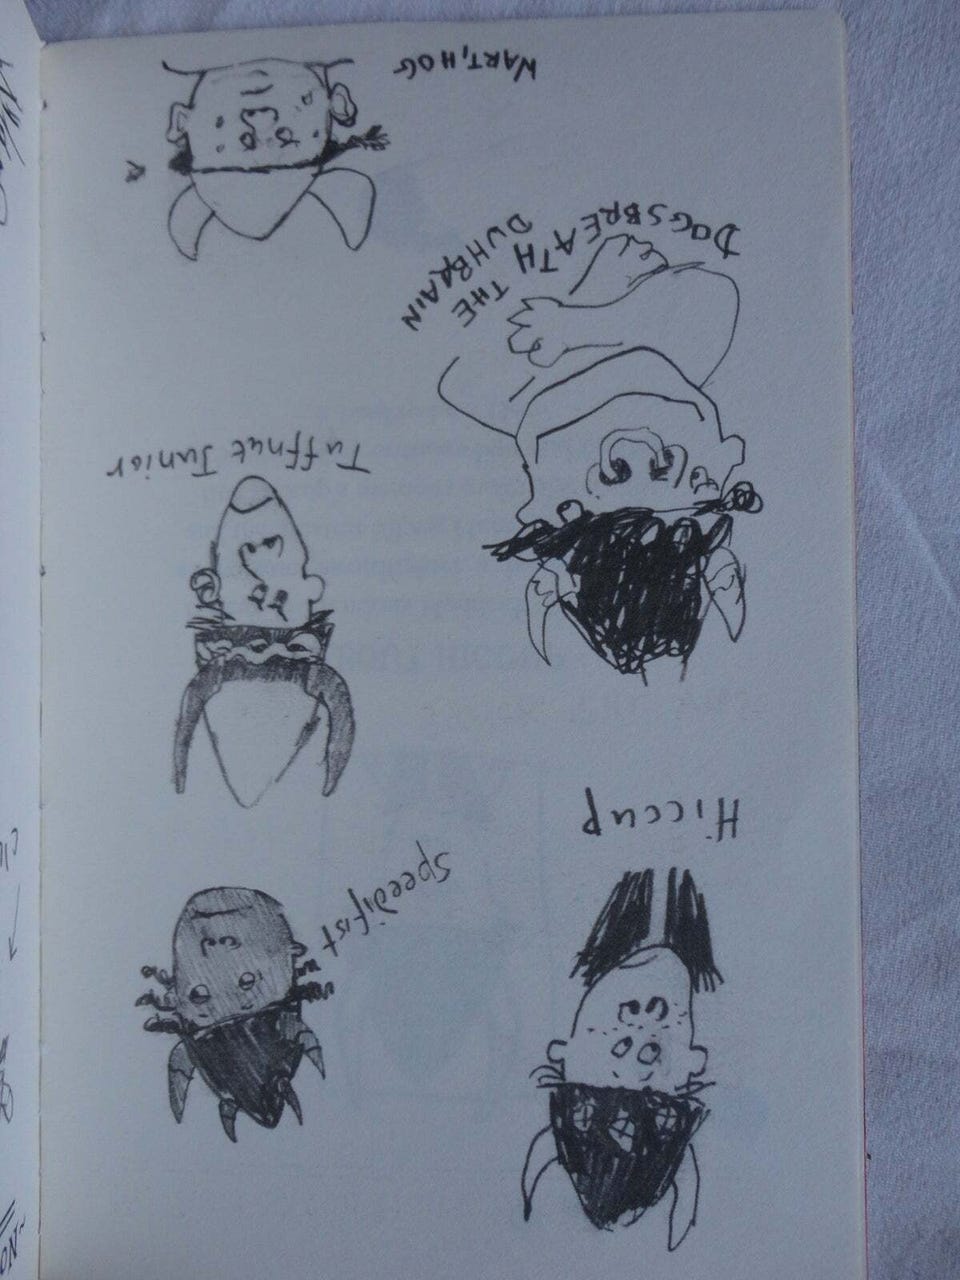 Hiccup
Speedifist
Tuffnut Junior
DOGSBREATH THE
DUHBRAIN
WART,HOG